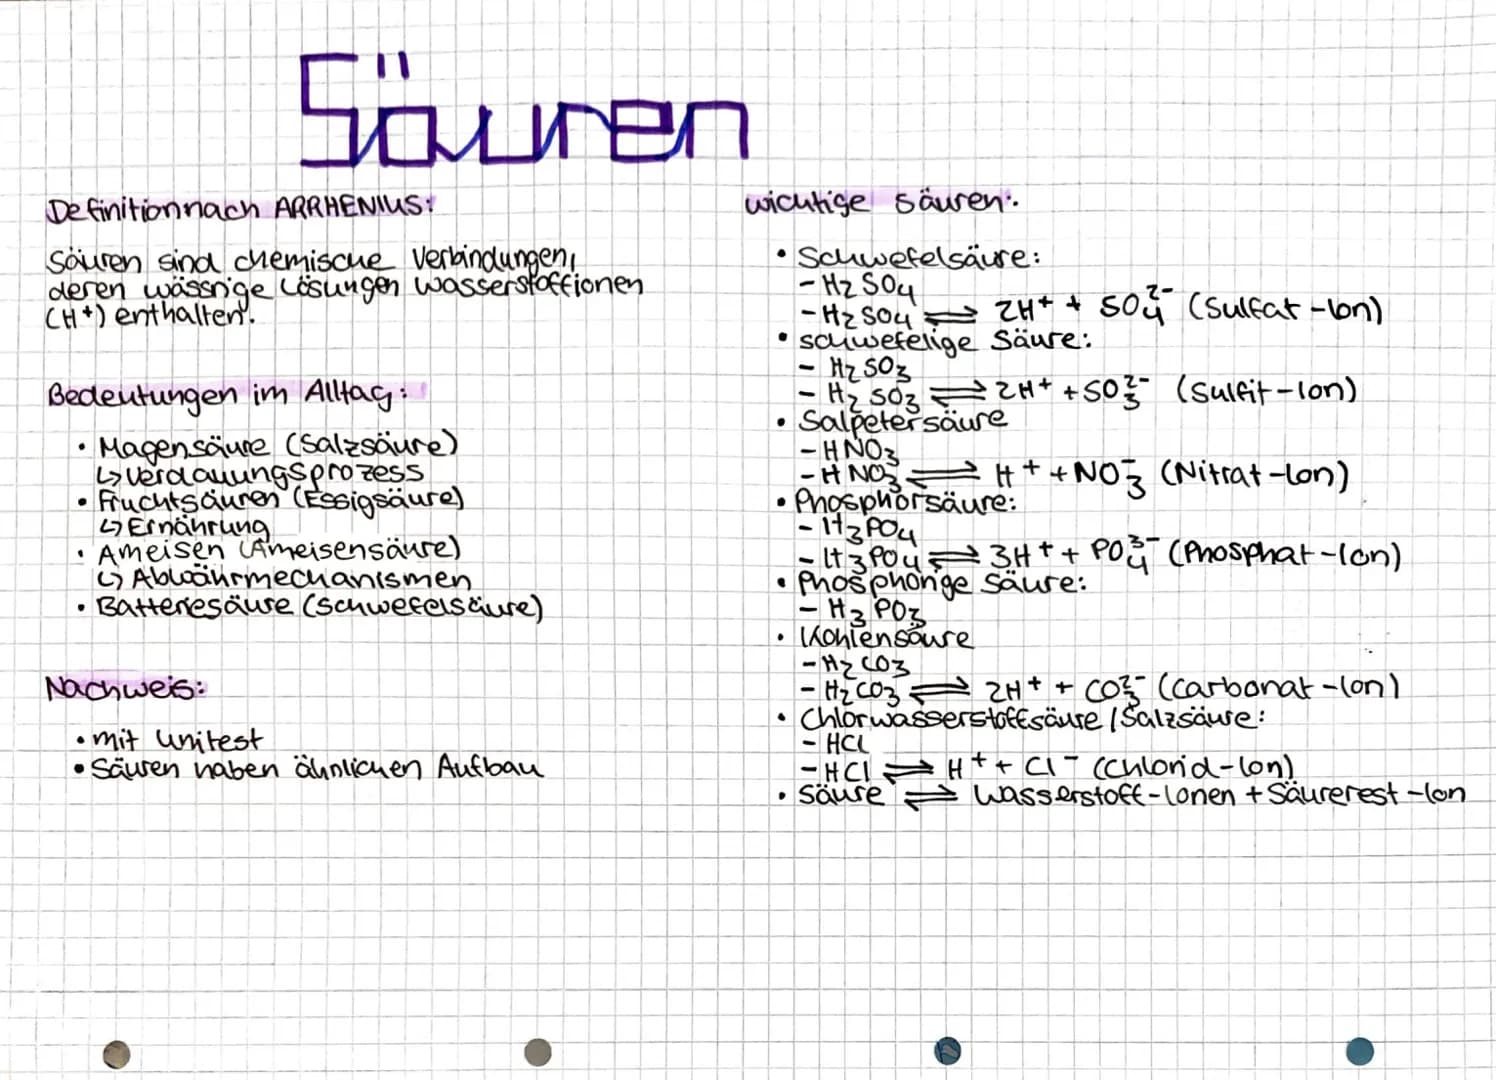 Säuren
Definition nach ARRHENIUS:
Säuren sind chemische Verbindungen,
deren wässrige Lösungen Wasserstoffionen
(H⁺) enthalten.
Bedeutungen im Alltag:
• Magensäure (Salzsäure)
↳ Verdauungsprozess
• Fruchtsäuren (Essigsäure)
↳ Ernährung
• Ameisen (Ameisensäure)
↳ Abwährmechanismen
• Batteriesäure (Schwefelsäure)
Nachweis:
• mit Unitest
• Säuren haben ähnlichen Aufbau
wichtige Säuren:
• Schwefelsäure:
- H₂SO₄
- H₂SO₄ ⇌ 2H⁺ + SO₄²⁻ (Sulfat-Ion)
• schwefelige Säure:
- H₂SO₃
- H₂SO₃ ⇌ 2H⁺ + SO₃²⁻ (Sulfit-Ion)
• Salpetersäure
- HNO₃
- HNO₃ ⇌ H⁺ + NO₃⁻ (Nitrat-Ion)
• Phosphorsäure:
- H₃PO₄
- H₃PO₄ ⇌ 3H⁺ + PO₄³⁻ (Phosphat-Ion)
• Phosphorige Säure:
- H₃PO₃
• Kohlensäure
- H₂CO₃
- H₂CO₃ ⇌ 2H⁺ + CO₃²⁻ (Carbonat-Ion)
• Chlorwasserstoffsäure / Salzsäure:
- HCl
- HCl ⇌ H⁺ + Cl⁻ (Chlorid-Ion)
• Säure ⇌ Wasserstoff-Ionen + Säurerest-Ion